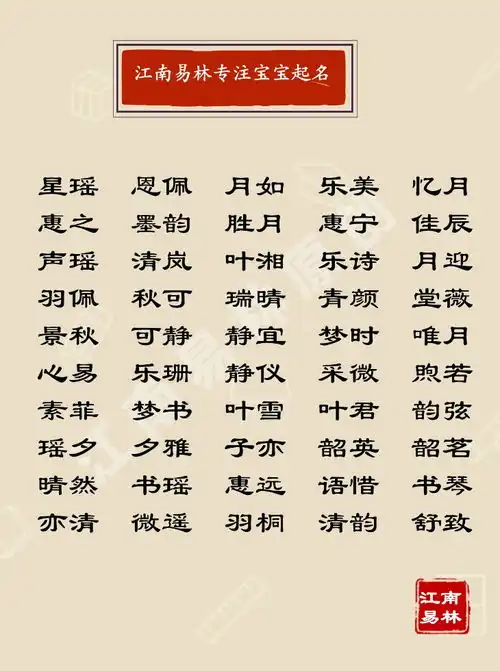 江南易林专注宝宝起名
星瑶 恩佩 月如 乐美 忆月
惠之 墨韵 胜月 惠宁 佳辰
声瑶 清岚 叶湘 乐诗 月迎
羽佩 秋可 瑞晴 青颜 堂薇
景秋 可静 静宜 梦时 唯月
心易 乐珊 静仪 采微 煦若
素菲 梦书 叶雪 叶君 韵弦
瑶夕 夕雅 子亦 韶英 韶茗
晴然 书瑶 惠远 语惜 书琴
亦清 微遥 羽桐 清韵 舒致
江南
易林
江南易林原创